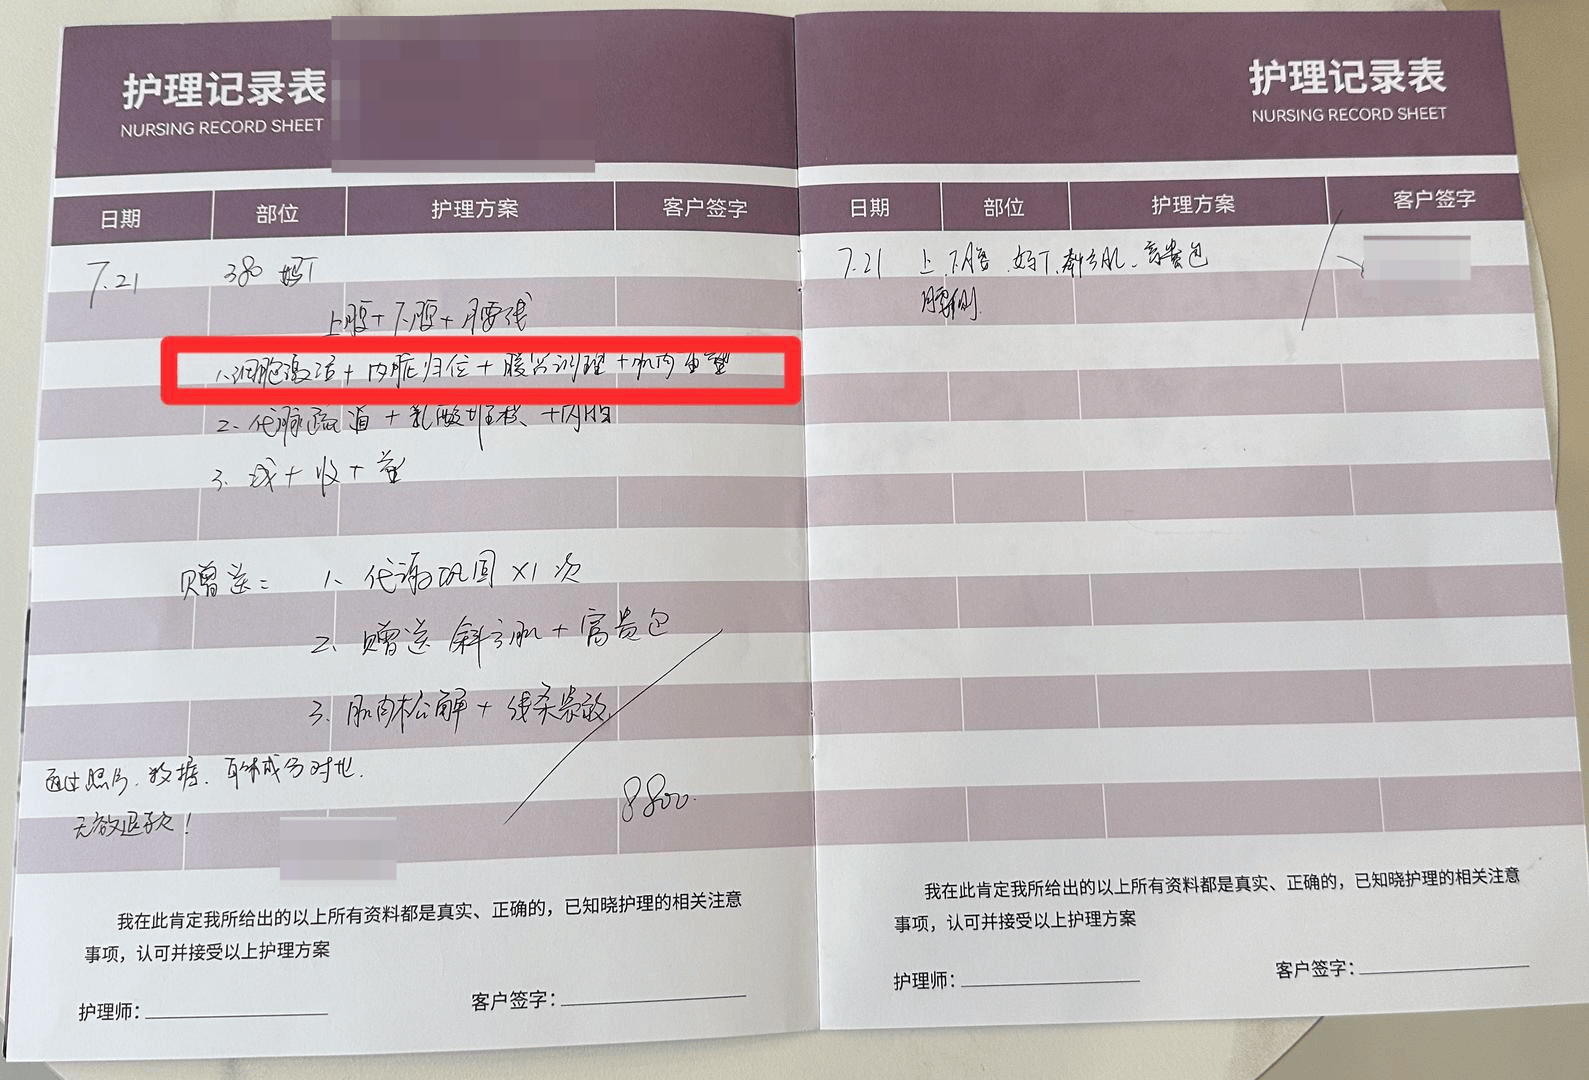 护理记录表
NURSING RECORD SHEET
日期 部位 护理方案 客户签字
7.21 380 妈丁
上腹+下腹+腰线
1、细胞激活+内脏归位+肌肉重塑
2、代谢+乳酸+内脏
3、线+收+塑
赠送: 1、代谢巩固×1次
2、赠送 斜方肌+富贵包
3、肌肉松解+
通过照片、数据、对比.
无效退款!
8800.
我在此肯定我所给出的以上所有资料都是真实、正确的，已知晓护理的相关注意
事项，认可并接受以上护理方案
护理师: 客户签字:
护理记录表
NURSING RECORD SHEET
日期 部位 护理方案 客户签字
7.21 上、下腹、妈丁、斜方肌、富贵包
腰侧.
我在此肯定我所给出的以上所有资料都是真实、正确的，已知晓护理的相关注意
事项，认可并接受以上护理方案
护理师: 客户签字: